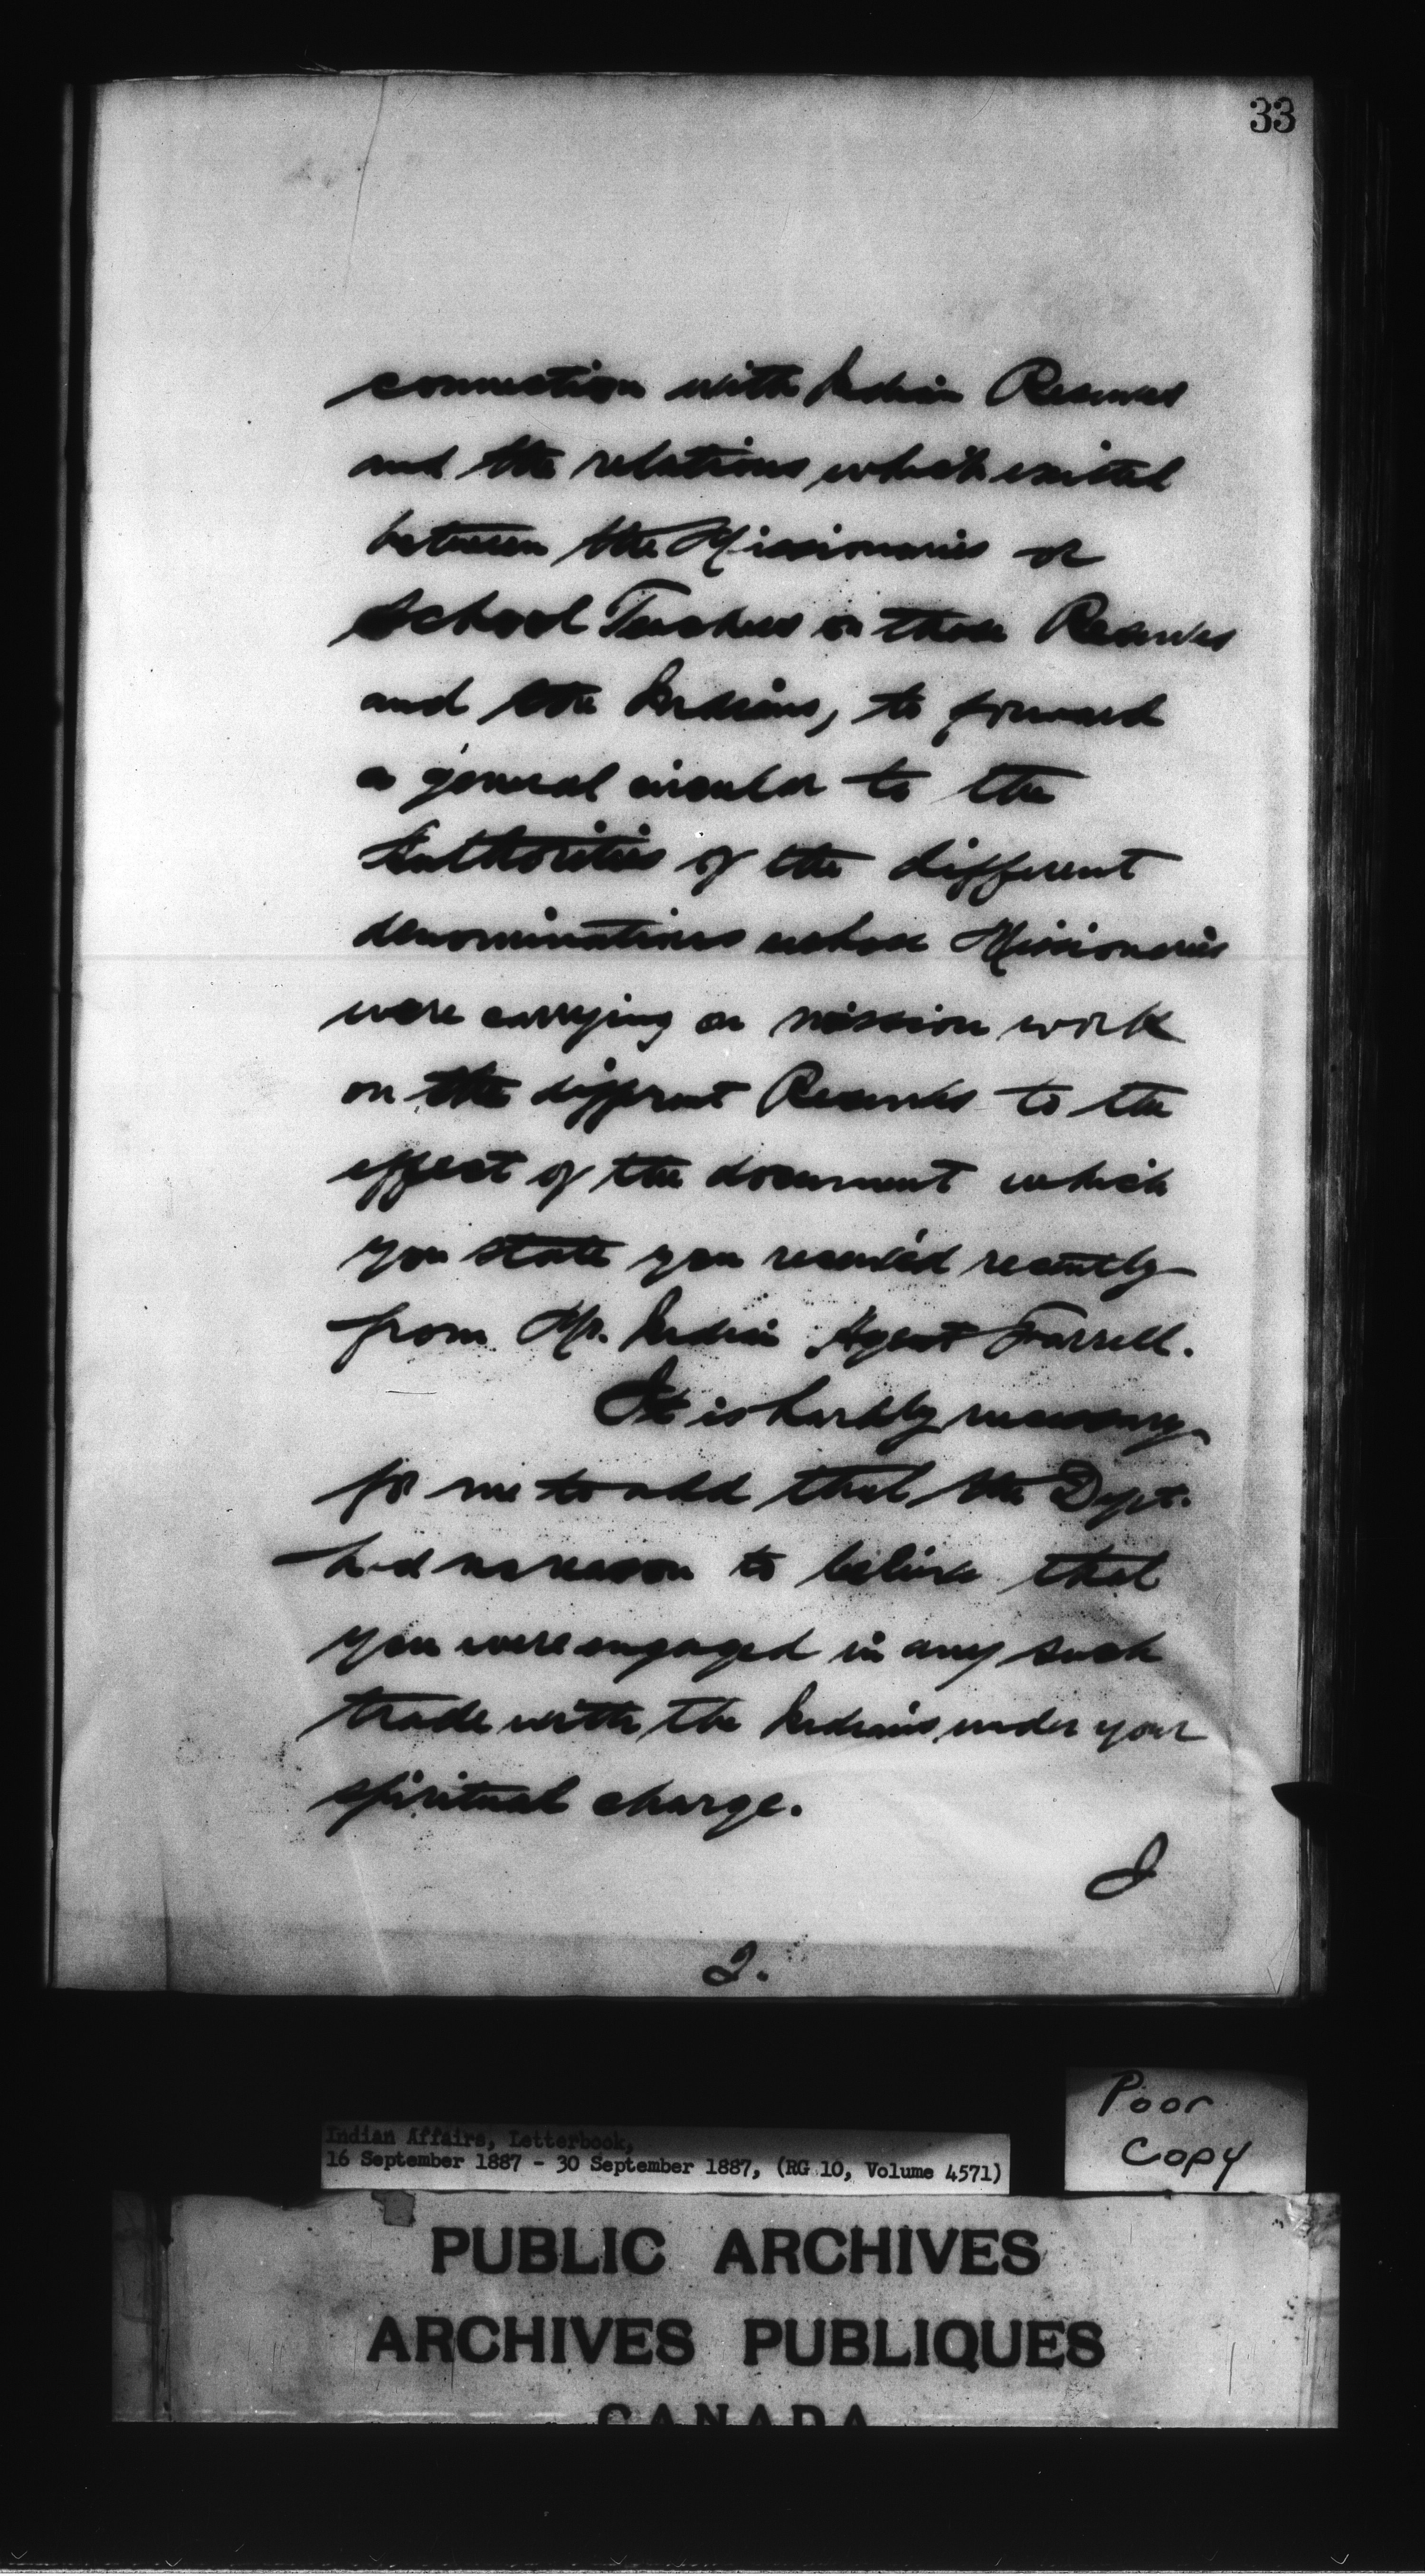 33
connection with Indian Reserves
and the relations which existed
between the Missionaries or
School Teachers on those Reserves
and the Indians, to forward
a general circular to the
Authorities of the different
denominations whose Missionaries
were carrying on mission work
on the different Reserves to the
effect of the document which
you state you received recently
from Mr. Indian Agent Farrell.
It is hardly necessary
for me to add that the Dept.
had no reason to believe that
you were engaged in any such
trade with the Indians under your
spiritual charge.
I
2.
Poor
Copy
Indian Affairs, Letterbook,
16 September 1887 - 30 September 1887, (RG 10, Volume 4571)
PUBLIC ARCHIVES
ARCHIVES PUBLIQUES
CANADA